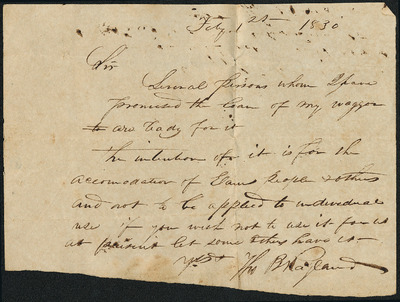 Feby 1st 1830
Sir
Several Persons whom I have
promised the loan of my waggon
to are ready for it
The intention of it is for the
accomodation of Town People & others
and not to be applied to individual
use if you wish not to use it for us
at present let some others have it
Yrs Tho B Ragland